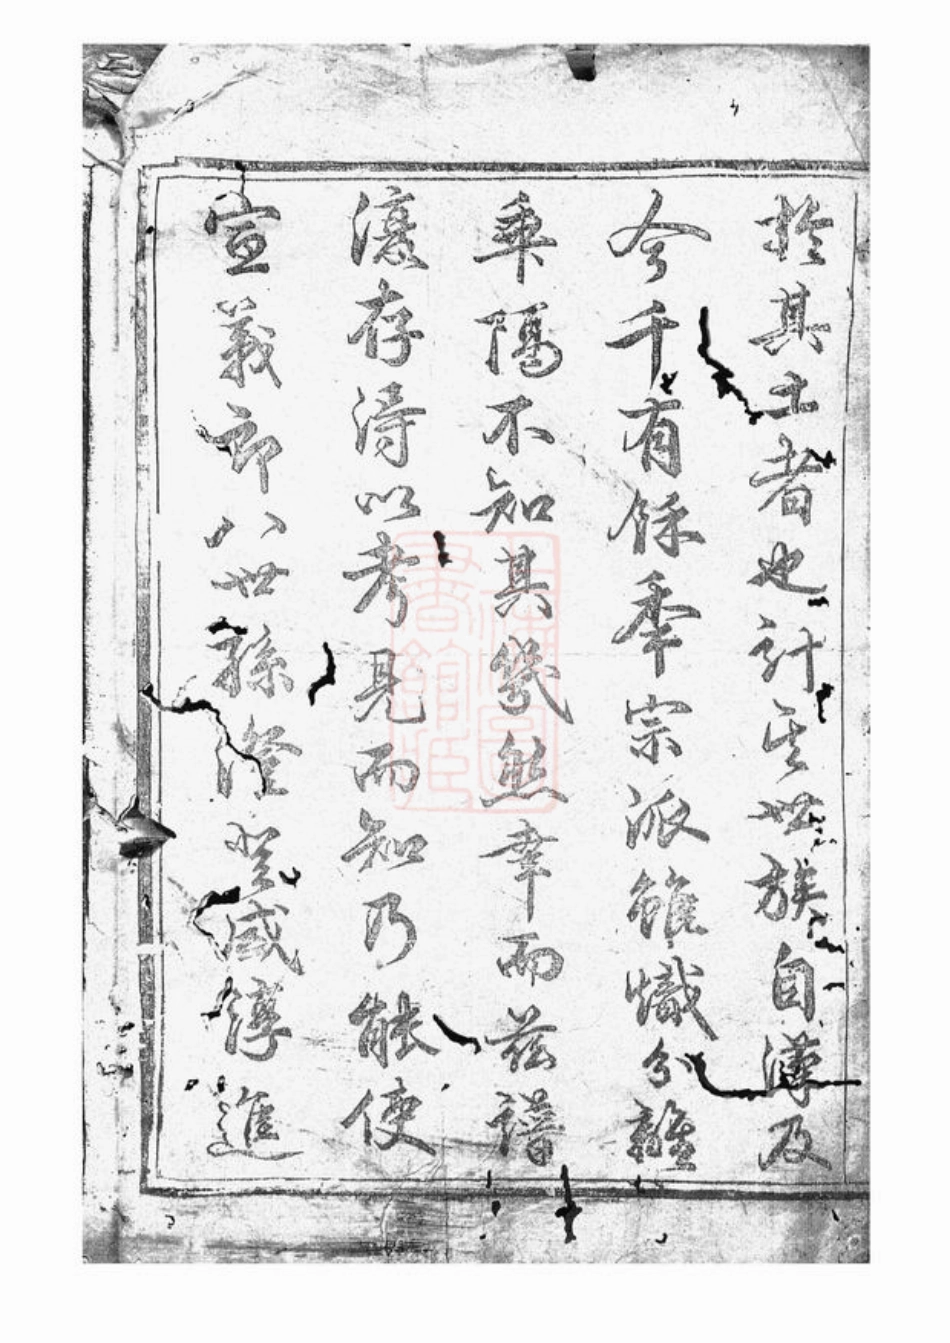 於其土者也計其世族自漢及
今千有餘季宗派雖熾分離
乖隔不知其幾然幸而茲譜
濅存得以考見而知乃能使
宣義郎八世孫澄登咸淳進